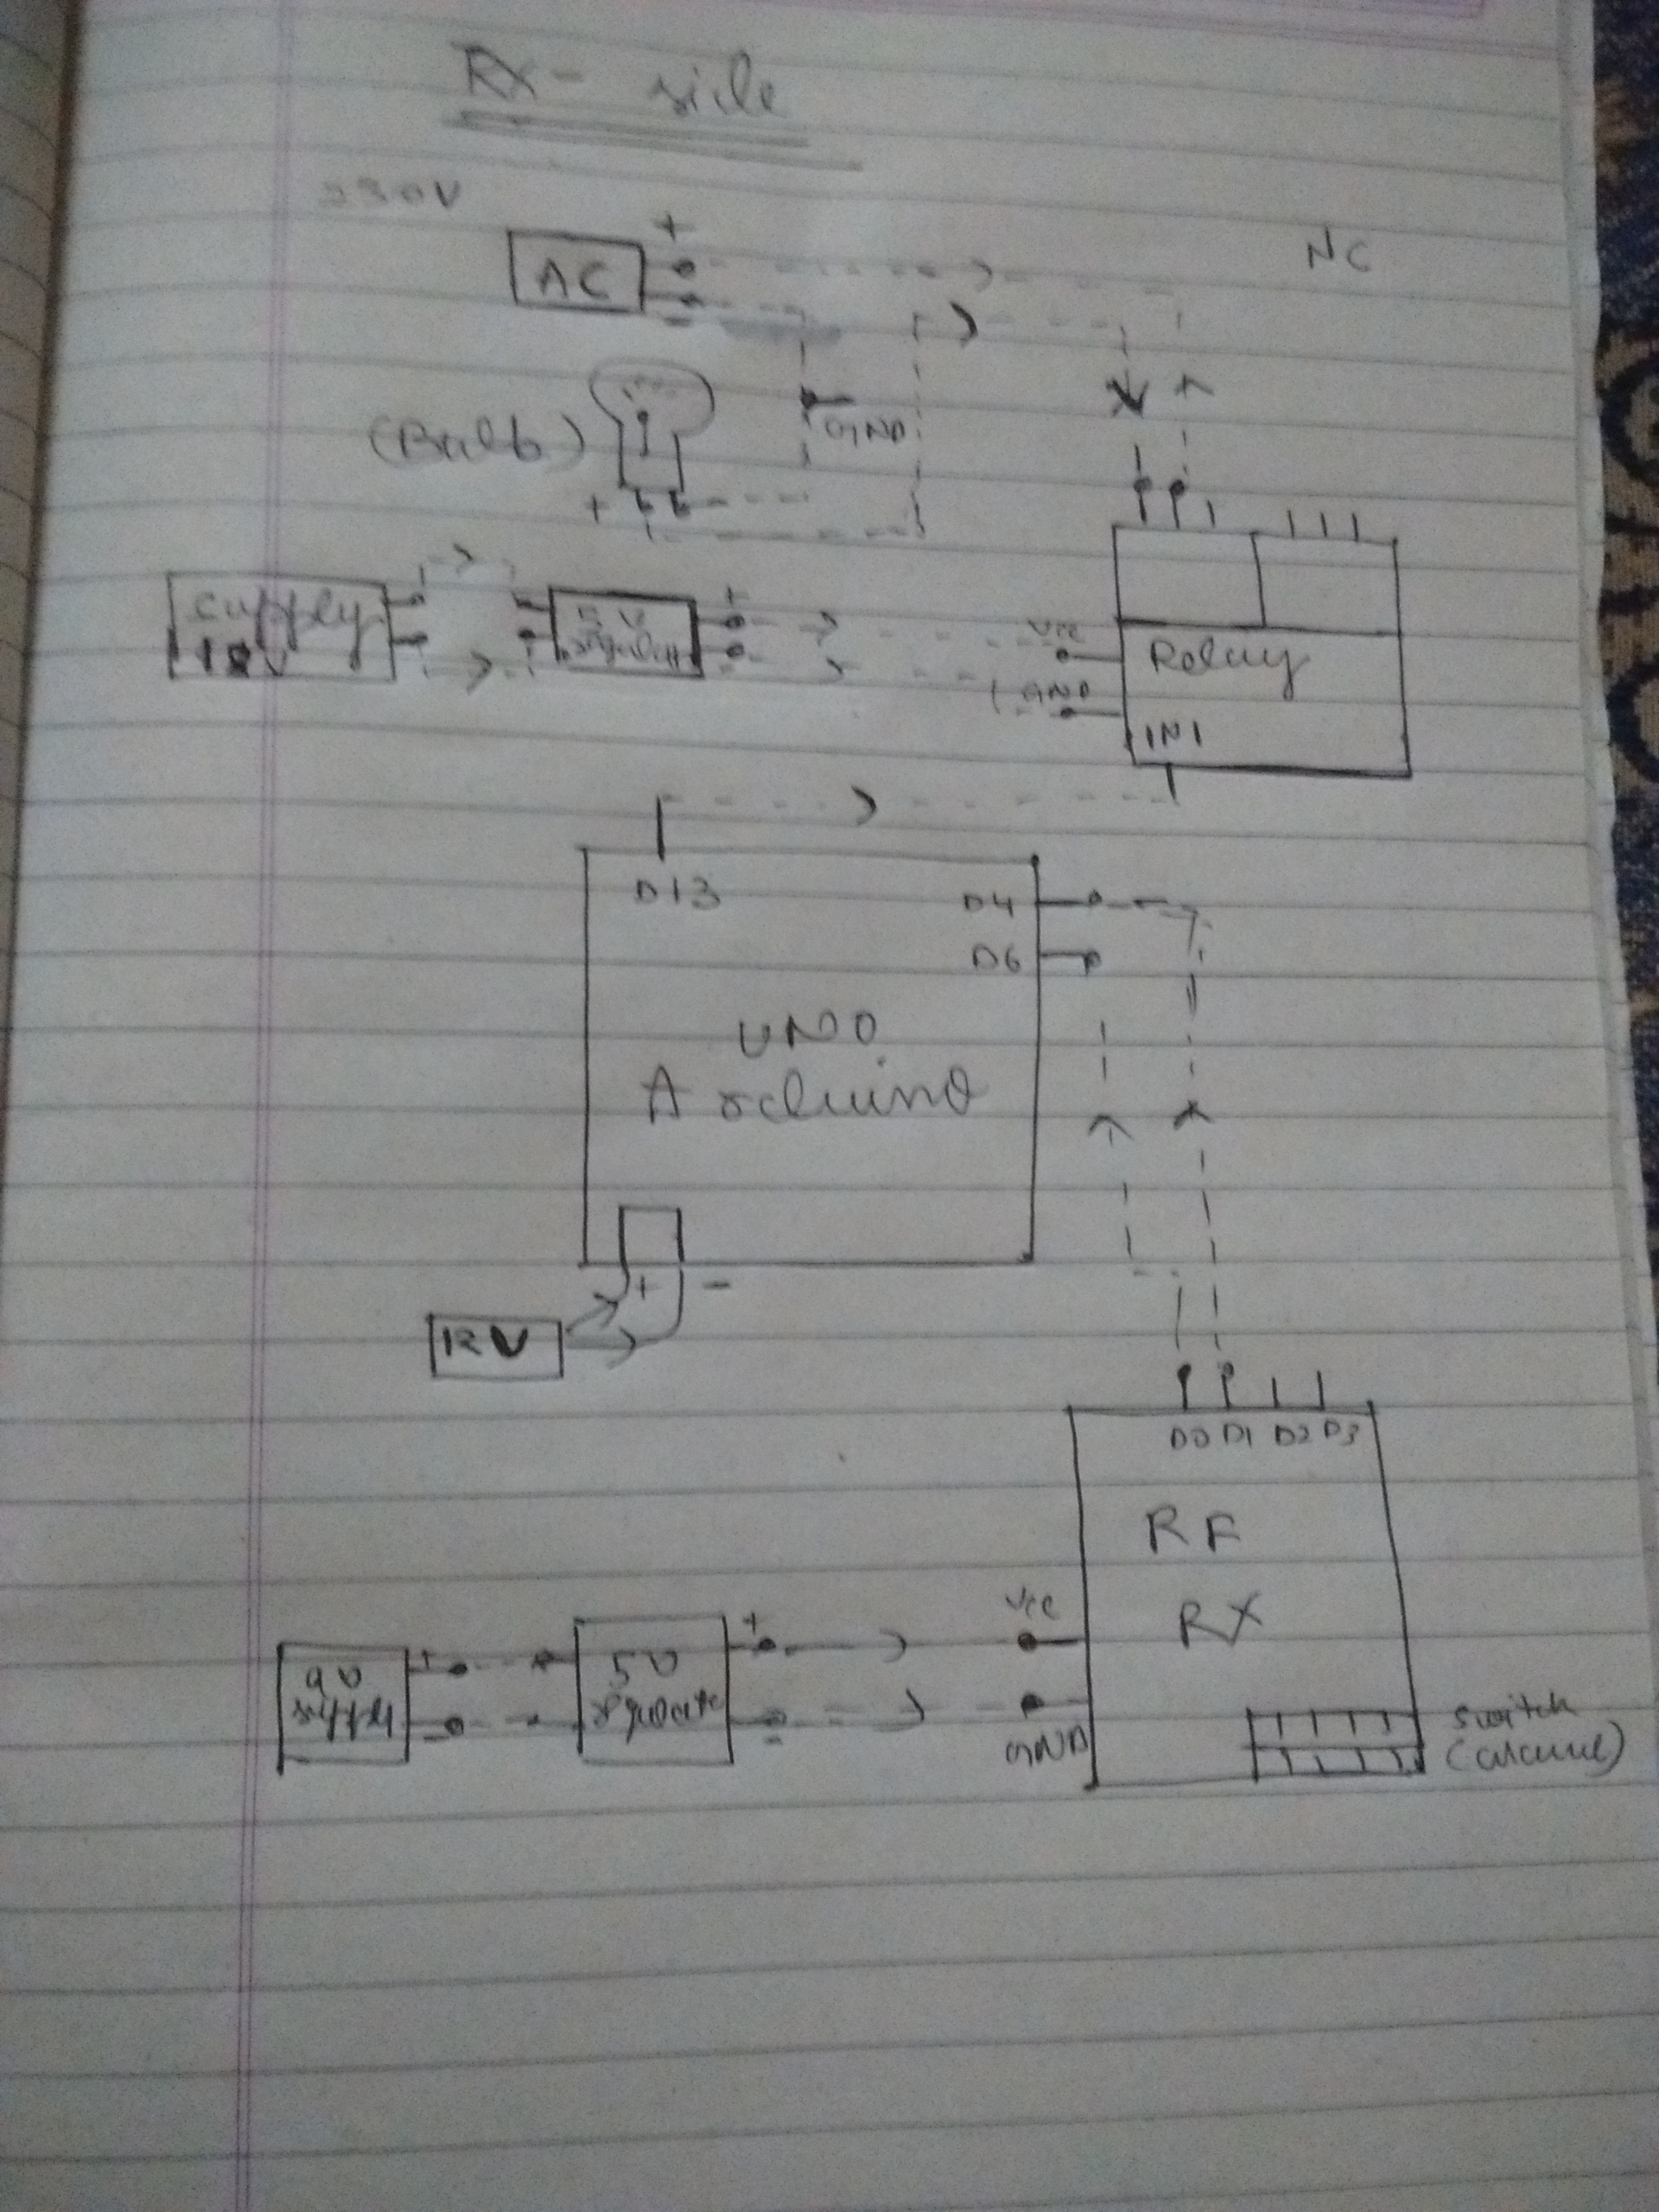 RX - side
230V
AC
+
-
NC
(Bulb)
GND
+
supply
5V
+
Vcc
GND
Relay
IN1
D13
D4
D6
UNO
Arduino
+ -
12V
D0 D1 D2 D3
RF
RX
9V
supply
+
-
5V
+
-
Vcc
GND
switch